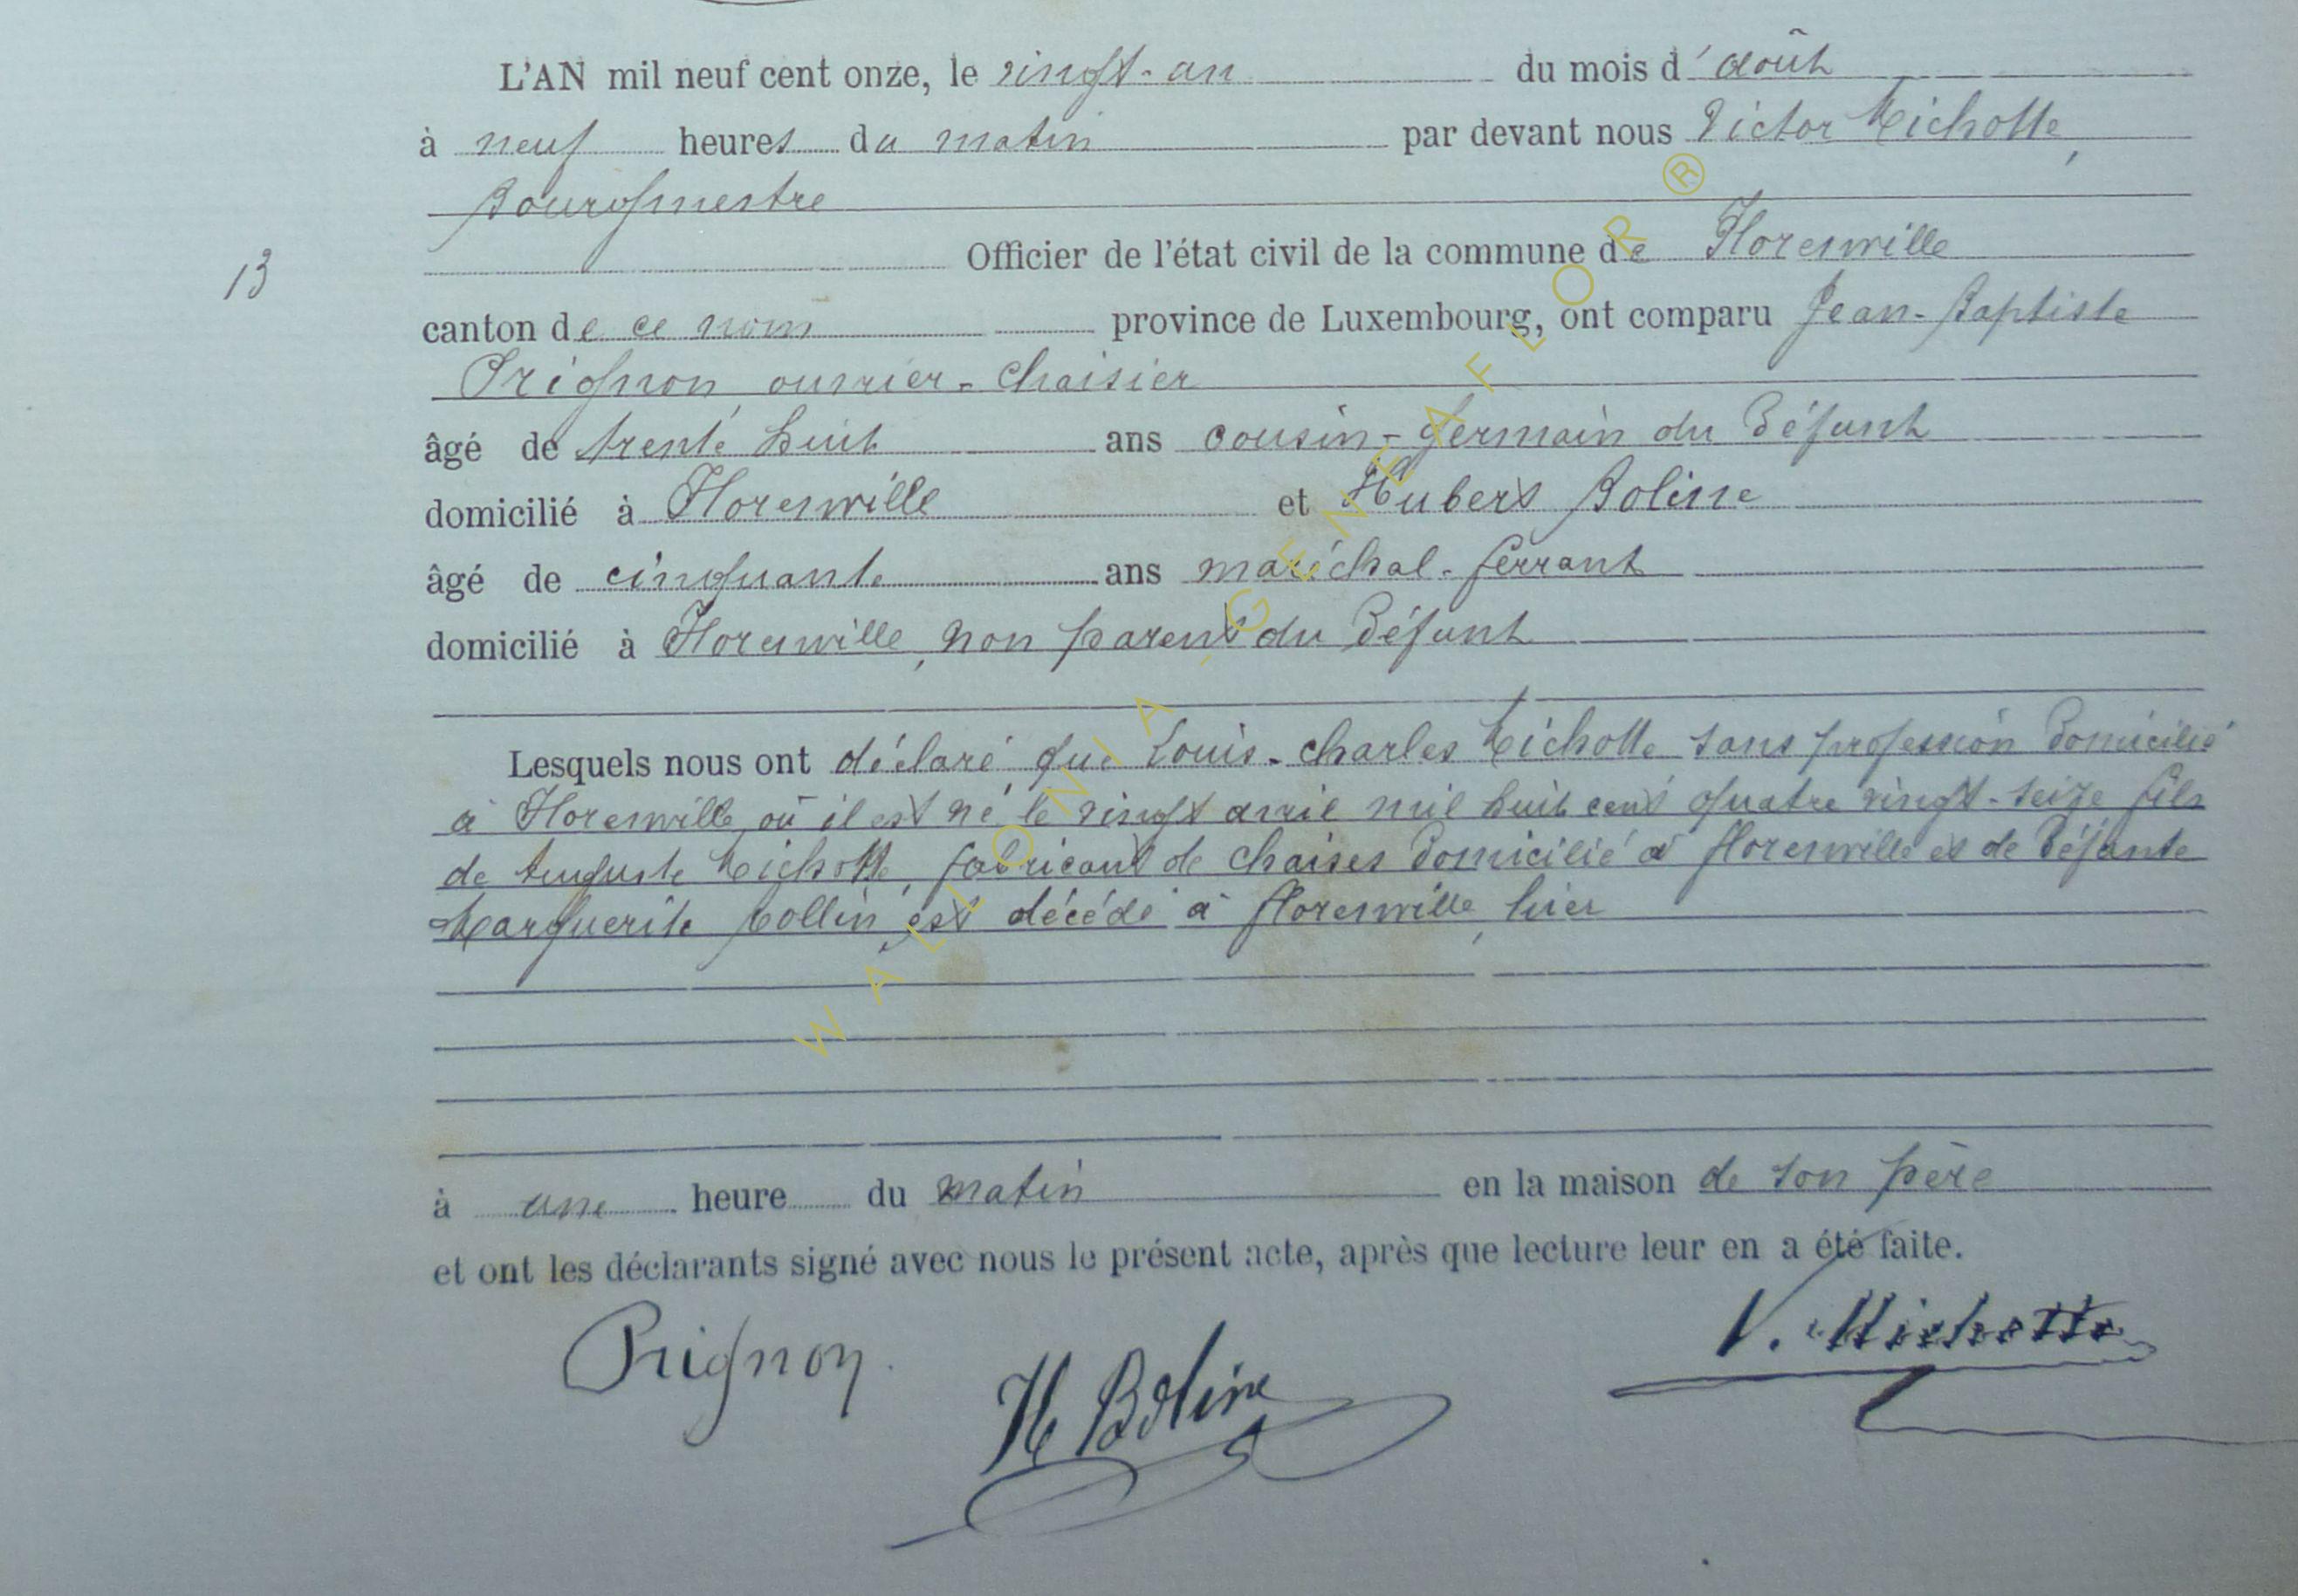 L'AN mil neuf cent onze, le vingt-un du mois d'août
à neuf heures du matin par devant nous Victor Michotte,
Bourgmestre
13
Officier de l'état civil de la commune de Florenville
canton de ce nom province de Luxembourg, ont comparu Jean-Baptiste
Prignon ouvrier-chaisier
âgé de trente huit ans cousin-germain du défunt
domicilié à Florenville et Hubert Boline
âgé de cinquante ans maréchal-ferrant
domicilié à Florenville, non parent du défunt
Lesquels nous ont déclaré que Louis-Charles Michotte sans profession domicilié
à Florenville, où il est né le vingt avril mil huit cent quatre vingt-seize fils
de Auguste Michotte, fabricant de chaises domicilié à Florenville et de défunte
Marguerite Collin, est décédé à Florenville, hier
à une heure du matin en la maison de son père
et ont les déclarants signé avec nous le présent acte, après que lecture leur en a été faite.
Prignon.
H Boline
V. Michotte
WALLONIA, GENEAFLOR ®